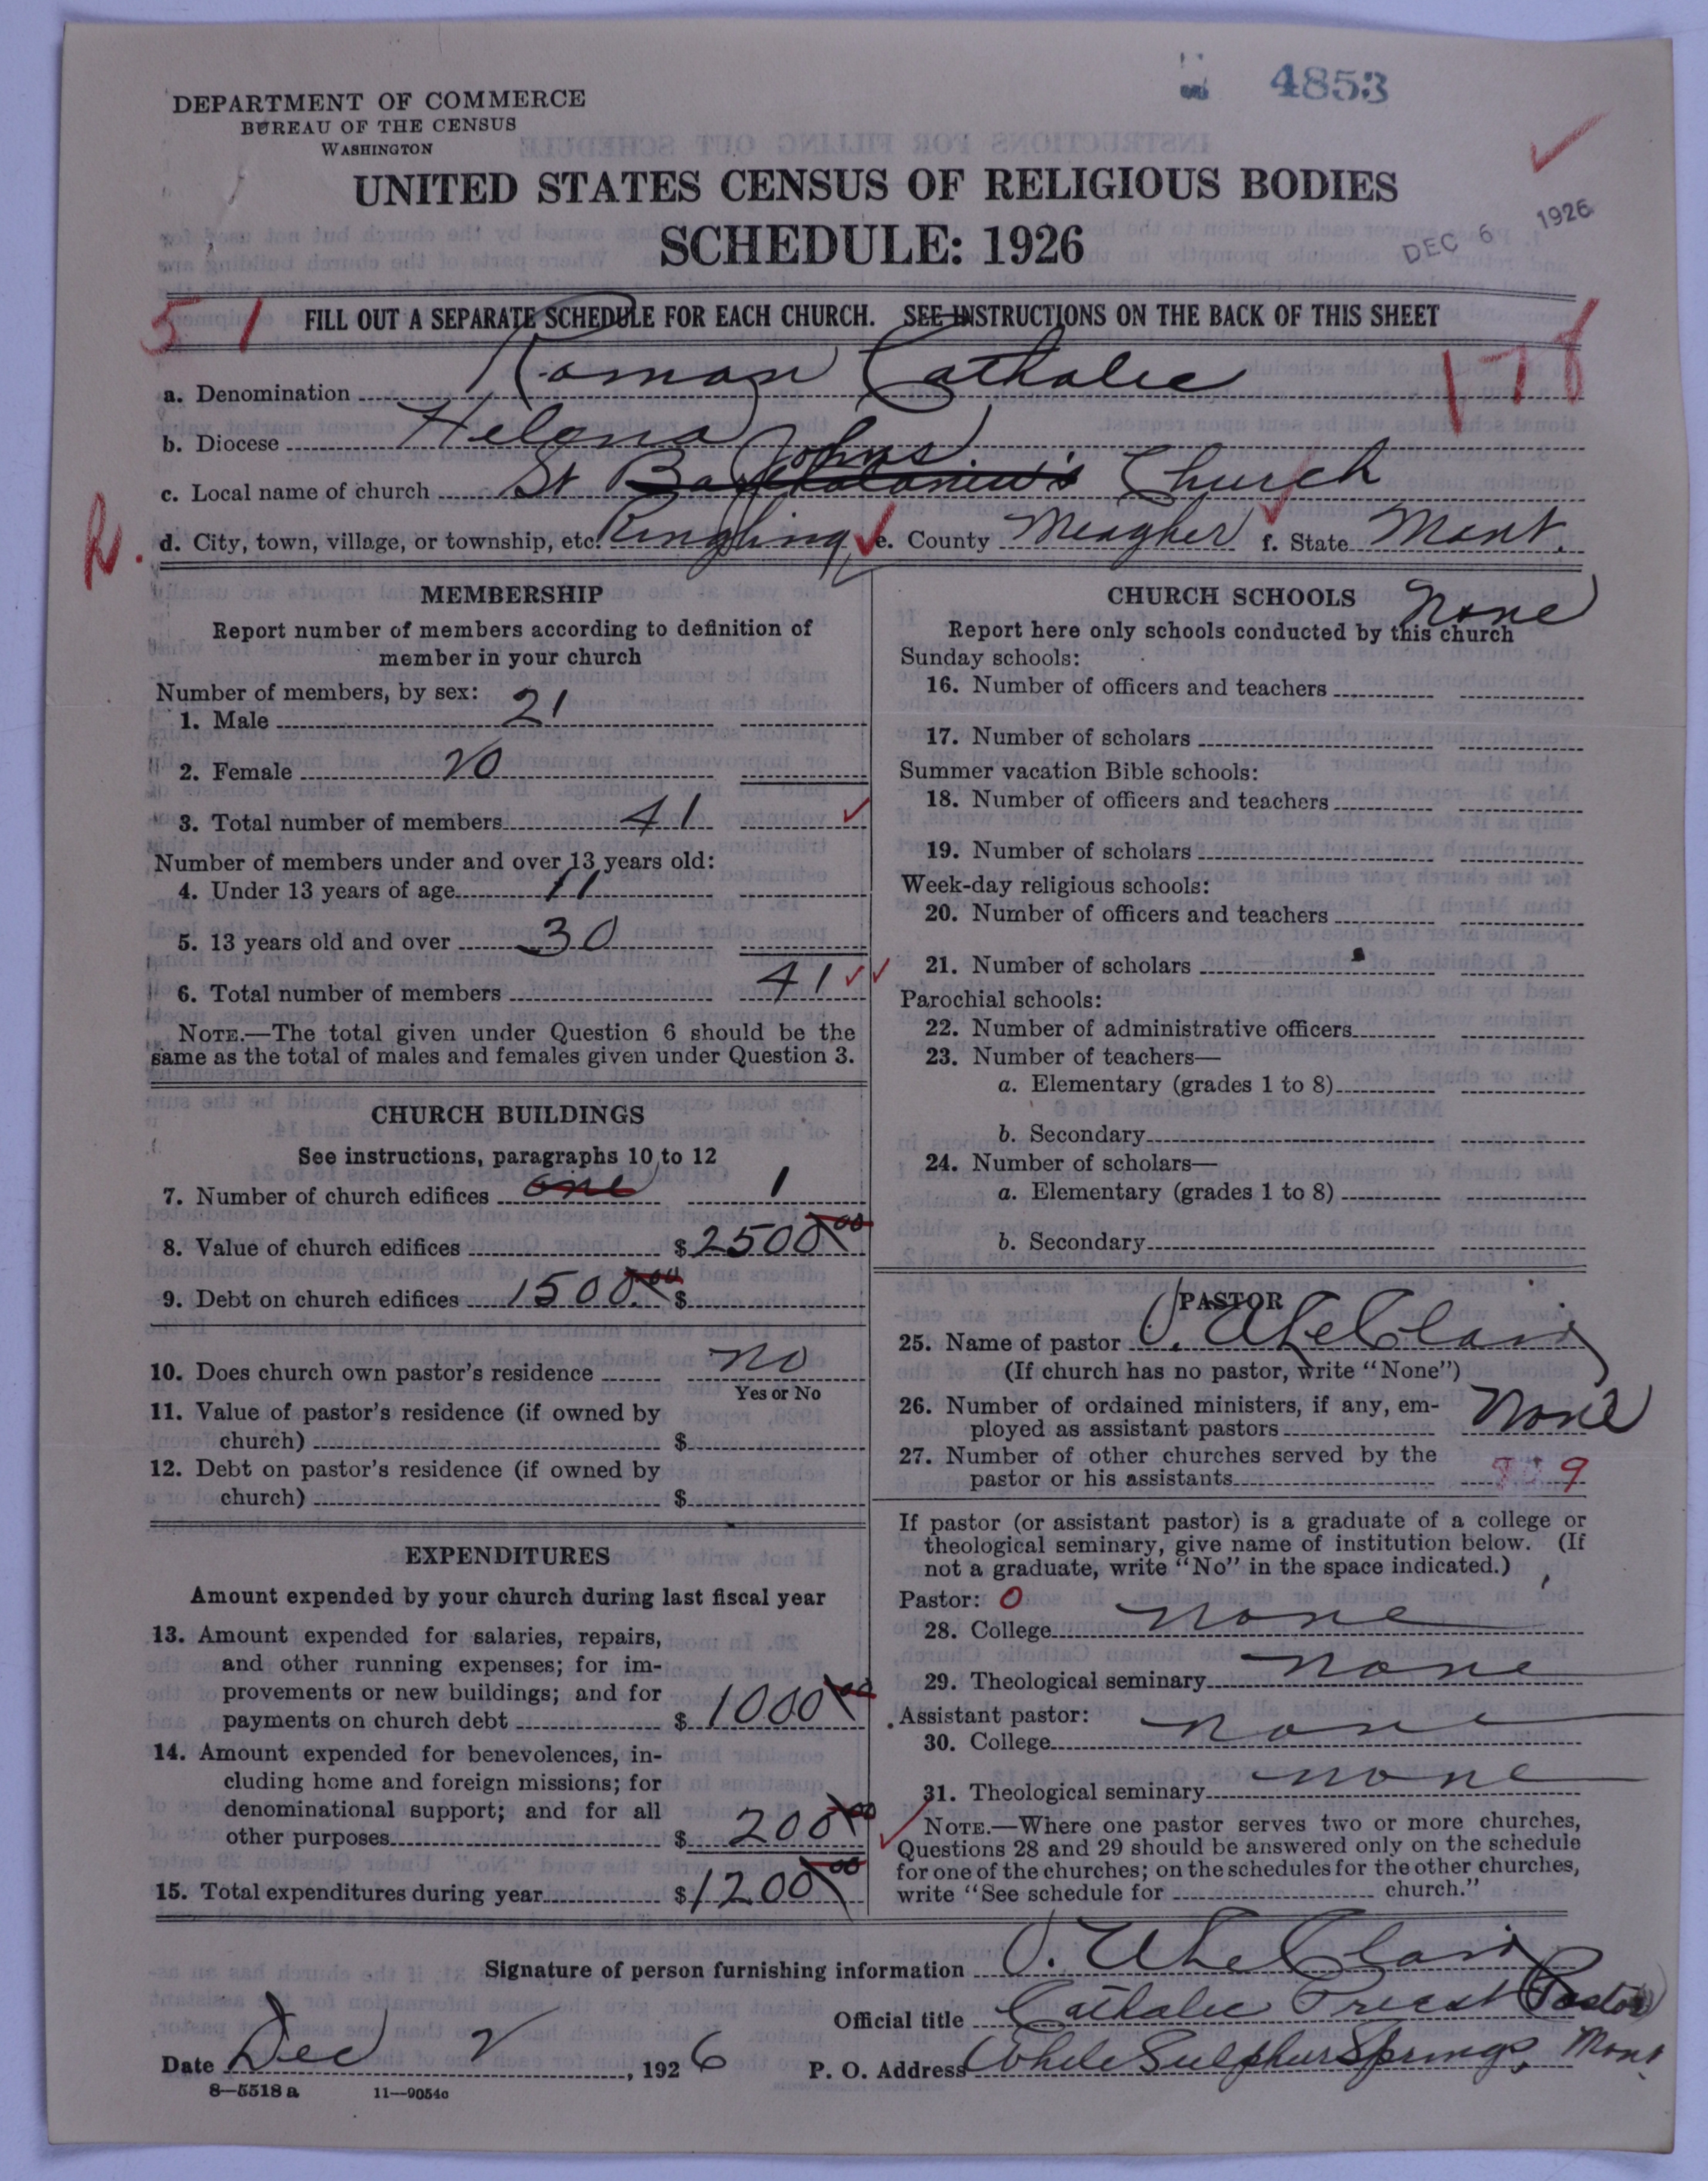 4853
DEPARTMENT OF COMMERCE
BUREAU OF THE CENSUS
WASHINGTON
UNITED STATES CENSUS OF RELIGIOUS BODIES
SCHEDULE: 1926
DEC 6 1926
51
178
FILL OUT A SEPARATE SCHEDULE FOR EACH CHURCH. SEE INSTRUCTIONS ON THE BACK OF THIS SHEET
a. Denomination Roman Catholic
b. Diocese Helena
c. Local name of church St Johns Church
R.
d. City, town, village, or township, etc. Ringling e. County Meagher f. State Mont.
MEMBERSHIP
Report number of members according to definition of
member in your church
Number of members, by sex:
1. Male 21
2. Female 20
3. Total number of members 41
Number of members under and over 13 years old:
4. Under 13 years of age 11
5. 13 years old and over 30
6. Total number of members 41
NOTE.—The total given under Question 6 should be the
same as the total of males and females given under Question 3.
CHURCH BUILDINGS
See instructions, paragraphs 10 to 12
7. Number of church edifices one 1
8. Value of church edifices $2500.00
9. Debt on church edifices 1500.00 $
10. Does church own pastor's residence no
Yes or No
11. Value of pastor's residence (if owned by
church) $
12. Debt on pastor's residence (if owned by
church) $
EXPENDITURES
Amount expended by your church during last fiscal year
13. Amount expended for salaries, repairs,
and other running expenses; for im-
provements or new buildings; and for
payments on church debt $1000.00
14. Amount expended for benevolences, in-
cluding home and foreign missions; for
denominational support; and for all
other purposes $200.00
15. Total expenditures during year $1200.00
CHURCH SCHOOLS None
Report here only schools conducted by this church
Sunday schools:
16. Number of officers and teachers
17. Number of scholars
Summer vacation Bible schools:
18. Number of officers and teachers
19. Number of scholars
Week-day religious schools:
20. Number of officers and teachers
21. Number of scholars
Parochial schools:
22. Number of administrative officers
23. Number of teachers—
a. Elementary (grades 1 to 8)
b. Secondary
24. Number of scholars—
a. Elementary (grades 1 to 8)
b. Secondary
PASTOR
25. Name of pastor
(If church has no pastor, write "None")
26. Number of ordained ministers, if any, em-
ployed as assistant pastors None
27. Number of other churches served by the
pastor or his assistants 9
If pastor (or assistant pastor) is a graduate of a college or
theological seminary, give name of institution below. (If
not a graduate, write "No" in the space indicated.)
Pastor: 0
28. College none
29. Theological seminary none
Assistant pastor:
30. College none
31. Theological seminary none
NOTE.—Where one pastor serves two or more churches,
Questions 28 and 29 should be answered only on the schedule
for one of the churches; on the schedules for the other churches,
write "See schedule for church."
Signature of person furnishing information
Official title Catholic Priest (Pastor)
Date Dec 2, 1926 P. O. Address White Sulphur Springs, Mont.
8—5518 a 11—9054c